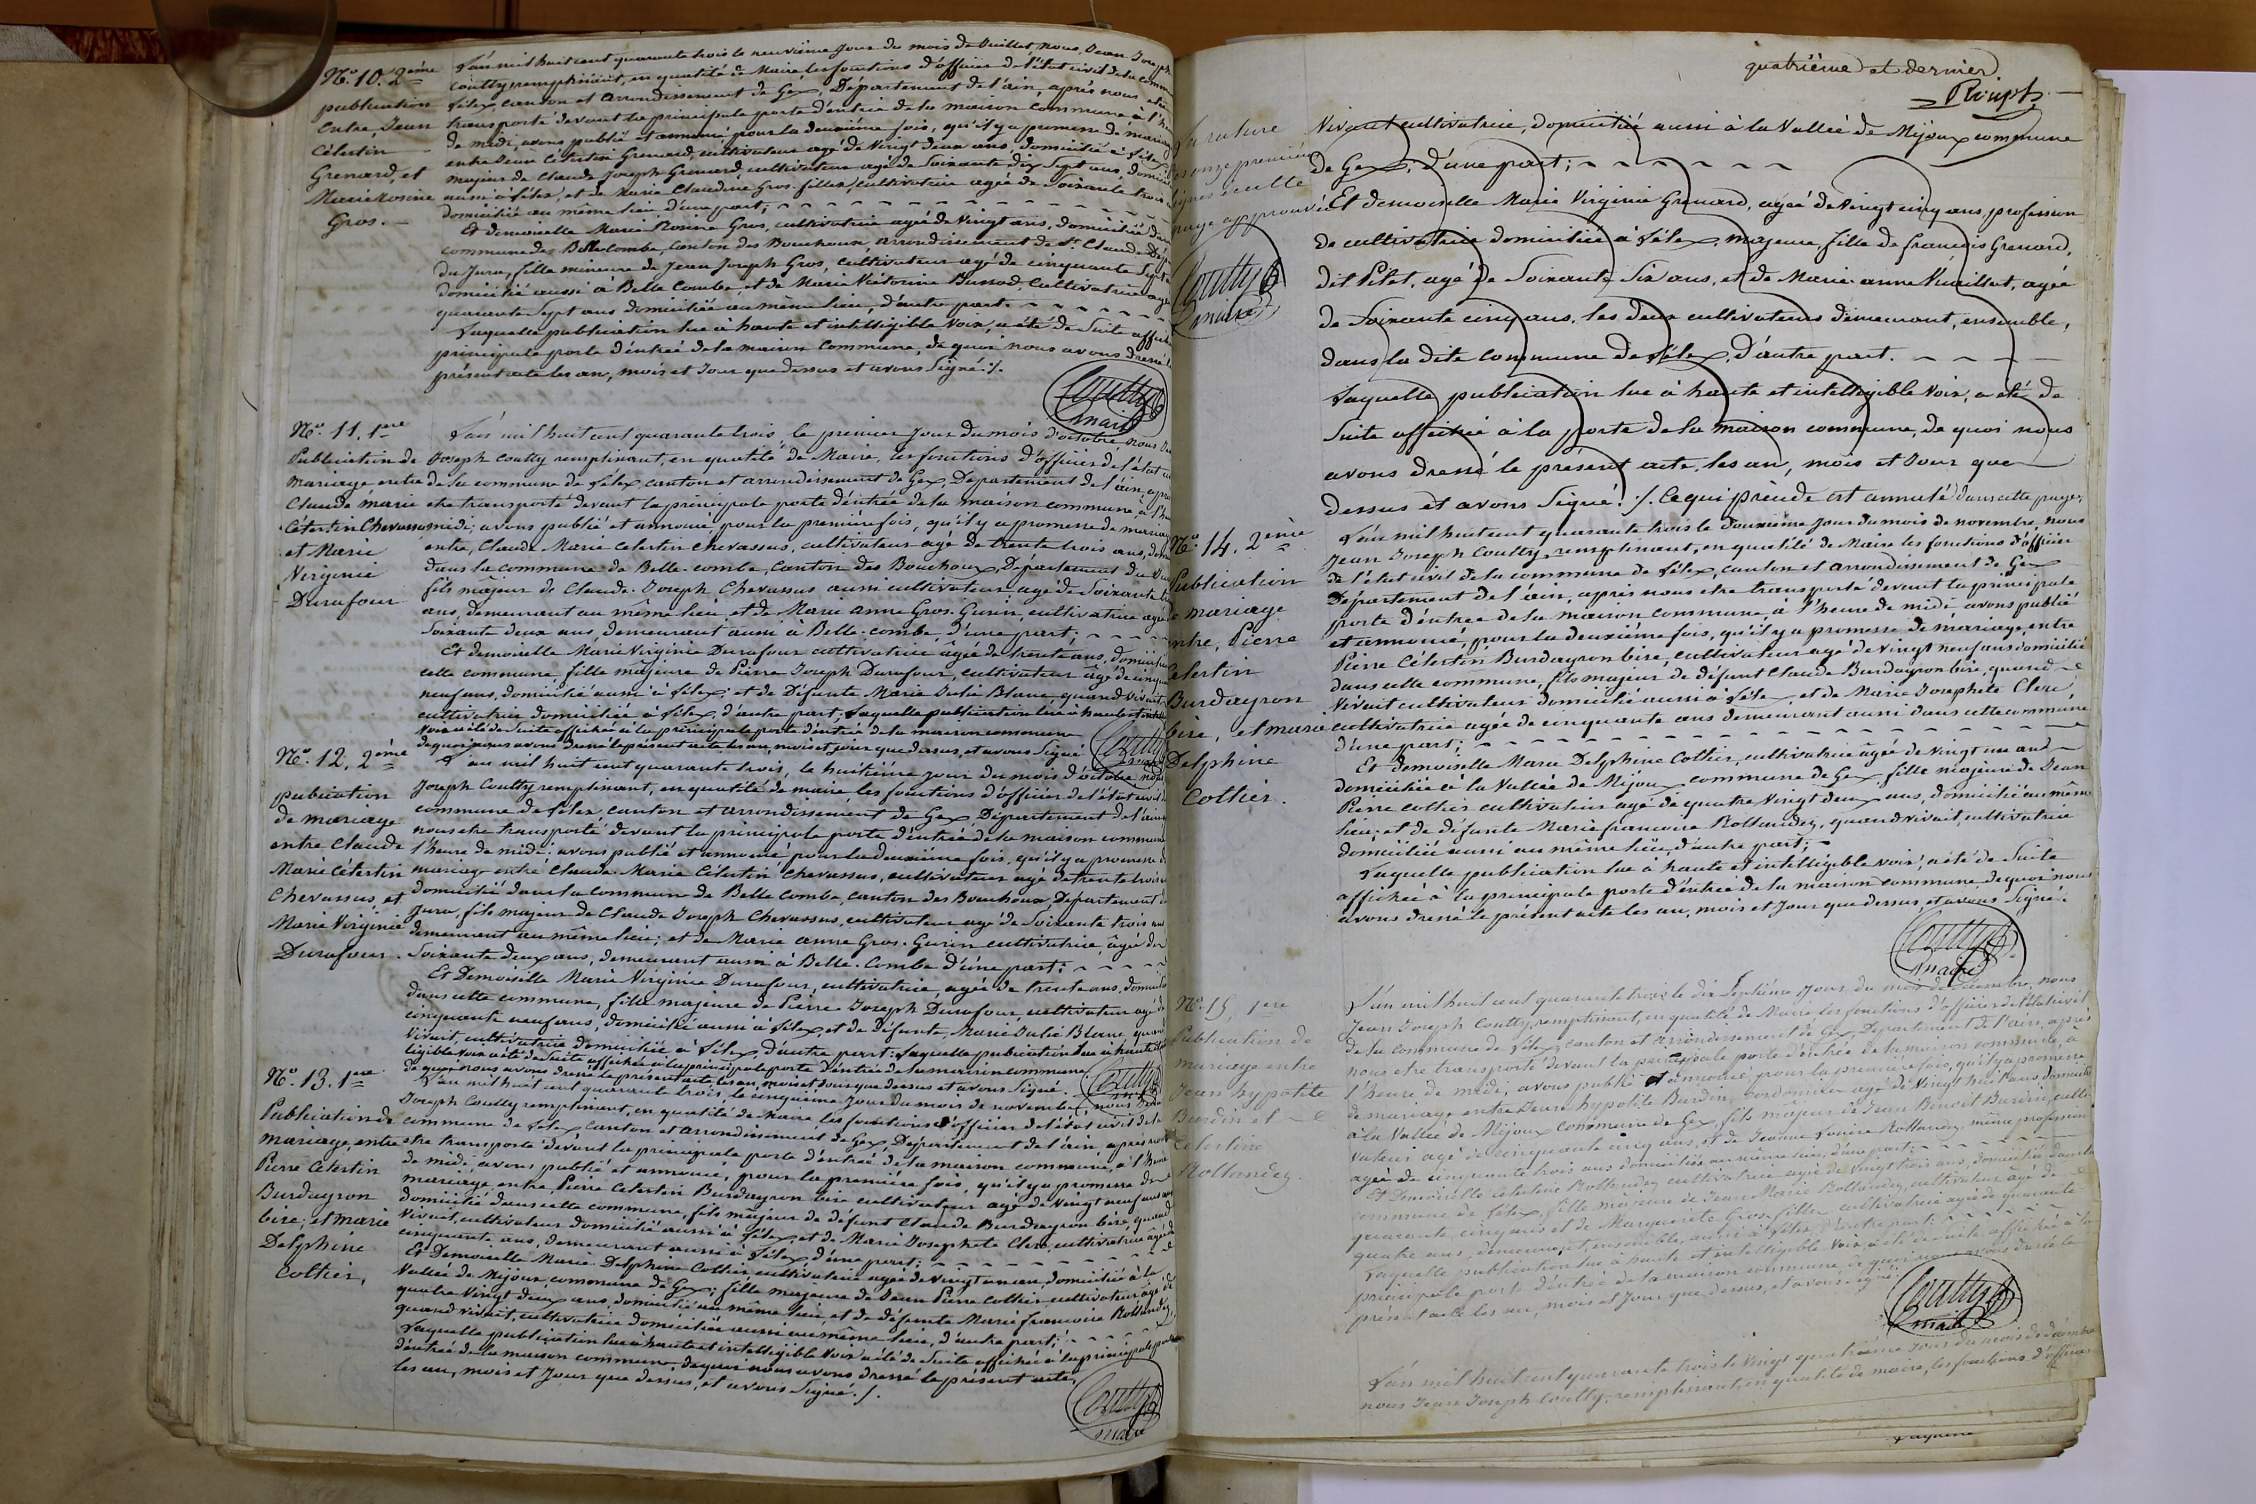 N.o 10. 2ème
publication
Entre, Jean
Célestin
Grenard, et
Marie Rosine
Gros. –
L'an mil huit cent quarante trois le neuvième jour du mois de Juillet, nous, Jean Joseph
Coutty, remplissant, en qualité de Maire les fonctions d'officier de l'état civil de la commune
Lélex, canton et arrondissement de Gex, Département de l'ain, après nous etre
transporté devant la principale porte d'entrée de la maison commune à l'heure
de midi, avons publié et annoncé pour la deuxième fois, qu'il y a promesse de mariage
entre Jean Célestin Grenard, cultivateur agé de Vingt deux ans, domicilié à Lélex
majeur de Claude Joseph Grenard, cultivateur agé de Soixante dix Sept ans, domicilié
aussi à Lélex, et de Marie Claudine Gros-fillex, cultivatrice agée de Soixante trois
domiciliée au même lieu, d'une part;
Et demoiselle Marie Rosine Gros, cultivatrice agée de Vingt ans, domiciliée dans
commune des Belle Combe, Canton des Bouchoux arrondissement de St. Claude Dépt
du Jura, fille mineure de Jean Joseph Gros, cultivateur agé de cinquante Sept
domicilié aussi à Belle Combe et de Marie Victorine Bussod, Cultivatrice agée
quarante Sept ans domiciliée au même lieu, d'autre part.
Laquelle publication lue à haute et intelligible Voix, a été de Suite affichée
principale porte d'entrée de la maison Commune, de quoi nous avons dressé le
présent acte les an, mois et Jour que dessus et avons Signé ./.
Coutty
maire
N.o 11. 1ere
Publication de
Mariage entre
Claude marie
Célestin Chevassus
et Marie
Virginie
Durafour
L'an mil huit cent quarante trois, le premier jour du mois d'octobre nous Jean
Joseph Coutty remplissant, en qualité de Maire, les fonctions d'officier de l'état civil
de la commune de Lélex, canton et arrondissement de Gex, Département de l'ain, après
etre transporté devant la principale porte d'entrée de la maison commune, à l'heure
midi, avons publié et annoncé, pour la première fois, qu'il y a promesse de mariage
entre, Claude Marie Celestin Chevassus, cultivateur agé de trente trois ans, dom
dans la commune de Belle-combe, Canton des Bouchoux, Département du Jura
fils majeur de Claude-Joseph Chevassus aussi cultivateur agé de Soixante trois
ans, demeurant au même lieu et de Marie anne Gros-Gurin, cultivatrice agée
Soixante deux ans, demeurant aussi à Belle-combe, d'une part;
Et demoiselle Marie Virginie Durafour cultivatrice agée de trente ans, domiciliée
cette commune, fille majeure de Pierre Joseph Durafour, cultivateur agé de cinquante
neuf ans, domicilié aussi à Lélex, et de Défunte Marie Julie Blanc quand vivait
cultivatrice domiciliée à Lélex, d'autre part; Laquelle publication lue à haute et intelligible
Voix a été de Suite affichée à la principale porte d'entrée de la maison commune
de quoi nous avons dressé le présent acte les an, mois et jour que dessus, et avons Signé
Coutty
N.o 12. 2ème
publication
de mariage
entre Claude
Marie Célestin
Chevassus, et
Marie Virginie
Durafour.
L'an mil huit cent quarante trois, le huitième jour du mois d'octobre nous
Joseph Coutty remplissant, en qualité de maire les fonctions d'officier de l'état civil
commune de Lélex, canton et arrondissement de Gex, Département de l'ain
nous etre transporté devant la principale porte d'entrée de la maison commune
l'heure de midi, avons publié et annoncé pour la deuxième fois, qu'il y a promesse de
mariage entre Claude-Marie Célestin Chevassus, cultivateur agé de trente trois
domicilié dans la Commune de Belle Combe, Canton des Bouchoux, Département
Jura, fils majeur de Claude Joseph Chevassus, cultivateur agé de Soixante trois ans
demeurant au même lieu; et de Marie anne Gros-Gurin cultivatrice âgée de
Soixante deux ans, demeurant aussi à Belle-Combe d'une part;
Et Demoiselle Marie Virginie Durafour, cultivatrice, agée de trente ans, domiciliée
dans cette commune, fille majeure de Pierre Joseph Durafour, cultivateur agé de
cinquante neuf ans, domicilié aussi à Lélex et de Défunte, Marie Julie Blanc, quand
vivait, cultivatrice domiciliée à Lélex, d'autre part: Laquelle publication lue à haute et
ligible voix a été de Suite affichée à la principale porte d'entrée de la maison commune
de quoi nous avons dressé le présent acte les an, mois et Jour que dessus et avons Signé.
Coutty
N.o 13. 1ere
Publication de
mariage, entre
Pierre Célestin
Burdayron
bire; et marie
Delphine
Cottier,
L'an mil huit cent quarante trois, le cinquième Jour du mois de novembre, nous Jean
Joseph Coutty remplissant, en qualité de Maire, les fonctions d'officier de l'état civil de la
commune de Lélex canton et arrondissement de Gex, Département de l'ain, après nous
etre transporté devant la principale porte d'entrée de la maison commune, à l'heure
de midi, avons publié et annoncé, pour la première fois, qu'il y a promesse de
mariage, entre, Pierre Célestin Burdayron bire cultivateur agé de Vingt neuf ans
domicilié dans cette commune, fils majeur de défunt Claude Burdayron bire, quand
Vivait, cultivateur domicilié aussi à Lélex, et de Marie Josephete Clerc, cultivatrice agée de
cinquante ans, demeurant aussi à Lélex, d'une part;
Et Demoiselle Marie Delphine Cottier cultivatrice agée de vingt un an, domiciliée à la
Vallée de Mijoux commune de Gex, fille majeure de Jean Pierre Cottier cultivateur agé de
quatre Vingt deux ans, domicilié au même lieu et de défunte Marie francoise Rollandez,
quand vivait, cultivatrice domiciliée aussi au même lieu, d'autre part;
Laquelle publication lue à haute et intelligible Voix a été de Suite affichée à la principale porte
d'entrée de la maison commune, de quoi nous avons dressé le présent acte,
les an, mois et Jour que dessus, et avons Signé./.
Coutty
maire
quatrième et dernier
La rature
des onze premières
lignes de cette
page approuvée
Coutty
maire
Vivait cultivatrice, domiciliée aussi à la Vallée de Mijoux commune
de Gex, d'une part;
Et demoiselle Marie Virginie Grenard, agée de Vingt cinq ans, profession
de cultivatrice domiciliée à Lélex, majeure, fille de françois Grenard,
dit Pilet, agé de Soixante Six ans, et de Marie-anne Vuaillat, agée
de Soixante cinq ans, les deux cultivateurs demeurant, ensemble,
dans la dite Commune de Lélex, d'autre part.
Laquelle publication lue à haute et intelligible Voix, a été de
Suite affichée à la porte de la maison commune, de quoi nous
avons dressé le présent acte, les an, mois et Jour que
dessus et avons Signé ./. Ce qui précède est annulé dans cette page,
N.o 14. 2ème
Publication
de mariage
entre, Pierre
Celestin
Burdayron
bire, et marie
Delphine
Cottier.
L'an mil huit cent quarante trois le douzième Jour du mois de novembre, nous
Jean Joseph Coutty remplissant, en qualité de Maire les fonctions d'officier
de l'état civil de la commune de Lélex, canton et arrondissement de Gex
Département de l'ain, après nous etre transporté devant la principale
porte d'entrée de la maison commune, à l'heure de midi avons publié
et annoncé, pour la deuxième fois, qu'il y a promesse de mariage, entre
Pierre Célestin Burdayron bire, cultivateur agé de vingt neuf ans domicilié
dans cette commune, fils majeur de défunt Claude Burdayron bire, quand
Vivait cultivateur domicilié aussi à Lélex, et de Marie Josephete Clerc,
cultivatrice agée de cinquante ans demeurant aussi dans cette commune
d'une part;
Et demoiselle Marie Delphine Cottier, cultivatrice âgée de vingt un an
domiciliée à la Vallée de Mijoux commune de Gex, fille majeure de Jean
Pierre Cottier cultivateur agé de quatre Vingt deux ans, domicilié au même
lieu, et de défunte Marie francoise Rollandez, quand vivait, cultivatrice
domiciliée aussi au même lieu, d'autre part;
Laquelle publication lue à haute et intelligible voix, a été de Suite
affichée à la principale porte d'entrée de la maison commune, de quoi nous
avons dressé le présent acte les an, mois et Jour que dessus, et avons Signé.
Coutty
maire
N.o 15. 1ere
Publication de
mariage entre
Jean hypolite
Burdin et
Célestine
Rollandez.
L'an mil huit cent quarante trois le dix Septième Jour du mois de décembre, nous
Jean Joseph Coutty, remplissant, en qualité de Maire les fonctions d'officier de l'état civil
de la commune de Lélex, canton et arrondissement de Gex, Département de l'ain, après
nous etre transporté devant la principale porte d'entrée de la maison commune, à
l'heure de midi, avons publié et annoncé pour la première fois, qu'il y a promesse
de mariage entre Jean hypolite Burdin, cordonnier agé de Vingt huit ans domicilié
à la Vallée de Mijoux commune de Gex, fils majeur de Jean Benoit Burdin, culti-
vateur agé de cinquante cinq ans, et de Jeanne Louise Rollandez, même profession
agée de cinquante trois ans domiciliés au même lieu, d'une part;
Et Demoiselle Célestine Rollandez cultivatrice agée de vingt trois ans, domiciliée dans la
commune de Lélex, fille majeure de Jean Marie Rollandez, cultivateur âgé de
quarante cinq ans et de Marguerite Gros-fillex cultivatrice agée de quarante
quatre ans, demeurant, ensemble, aussi à Lélex, d'autre part;
Laquelle publication lue à haute et intelligible Voix a été de suite affichée à la
principale porte d'entrée de la maison commune, de quoi nous avons dressé le
présent acte les an, mois et Jour que dessus, et avons signé.
Coutty
maire
L'an mil huit cent quarante trois le Vingt quatrième jour du mois de décembre
nous Jean Joseph Coutty, remplissant, en qualité de maire, les fonctions d'officier